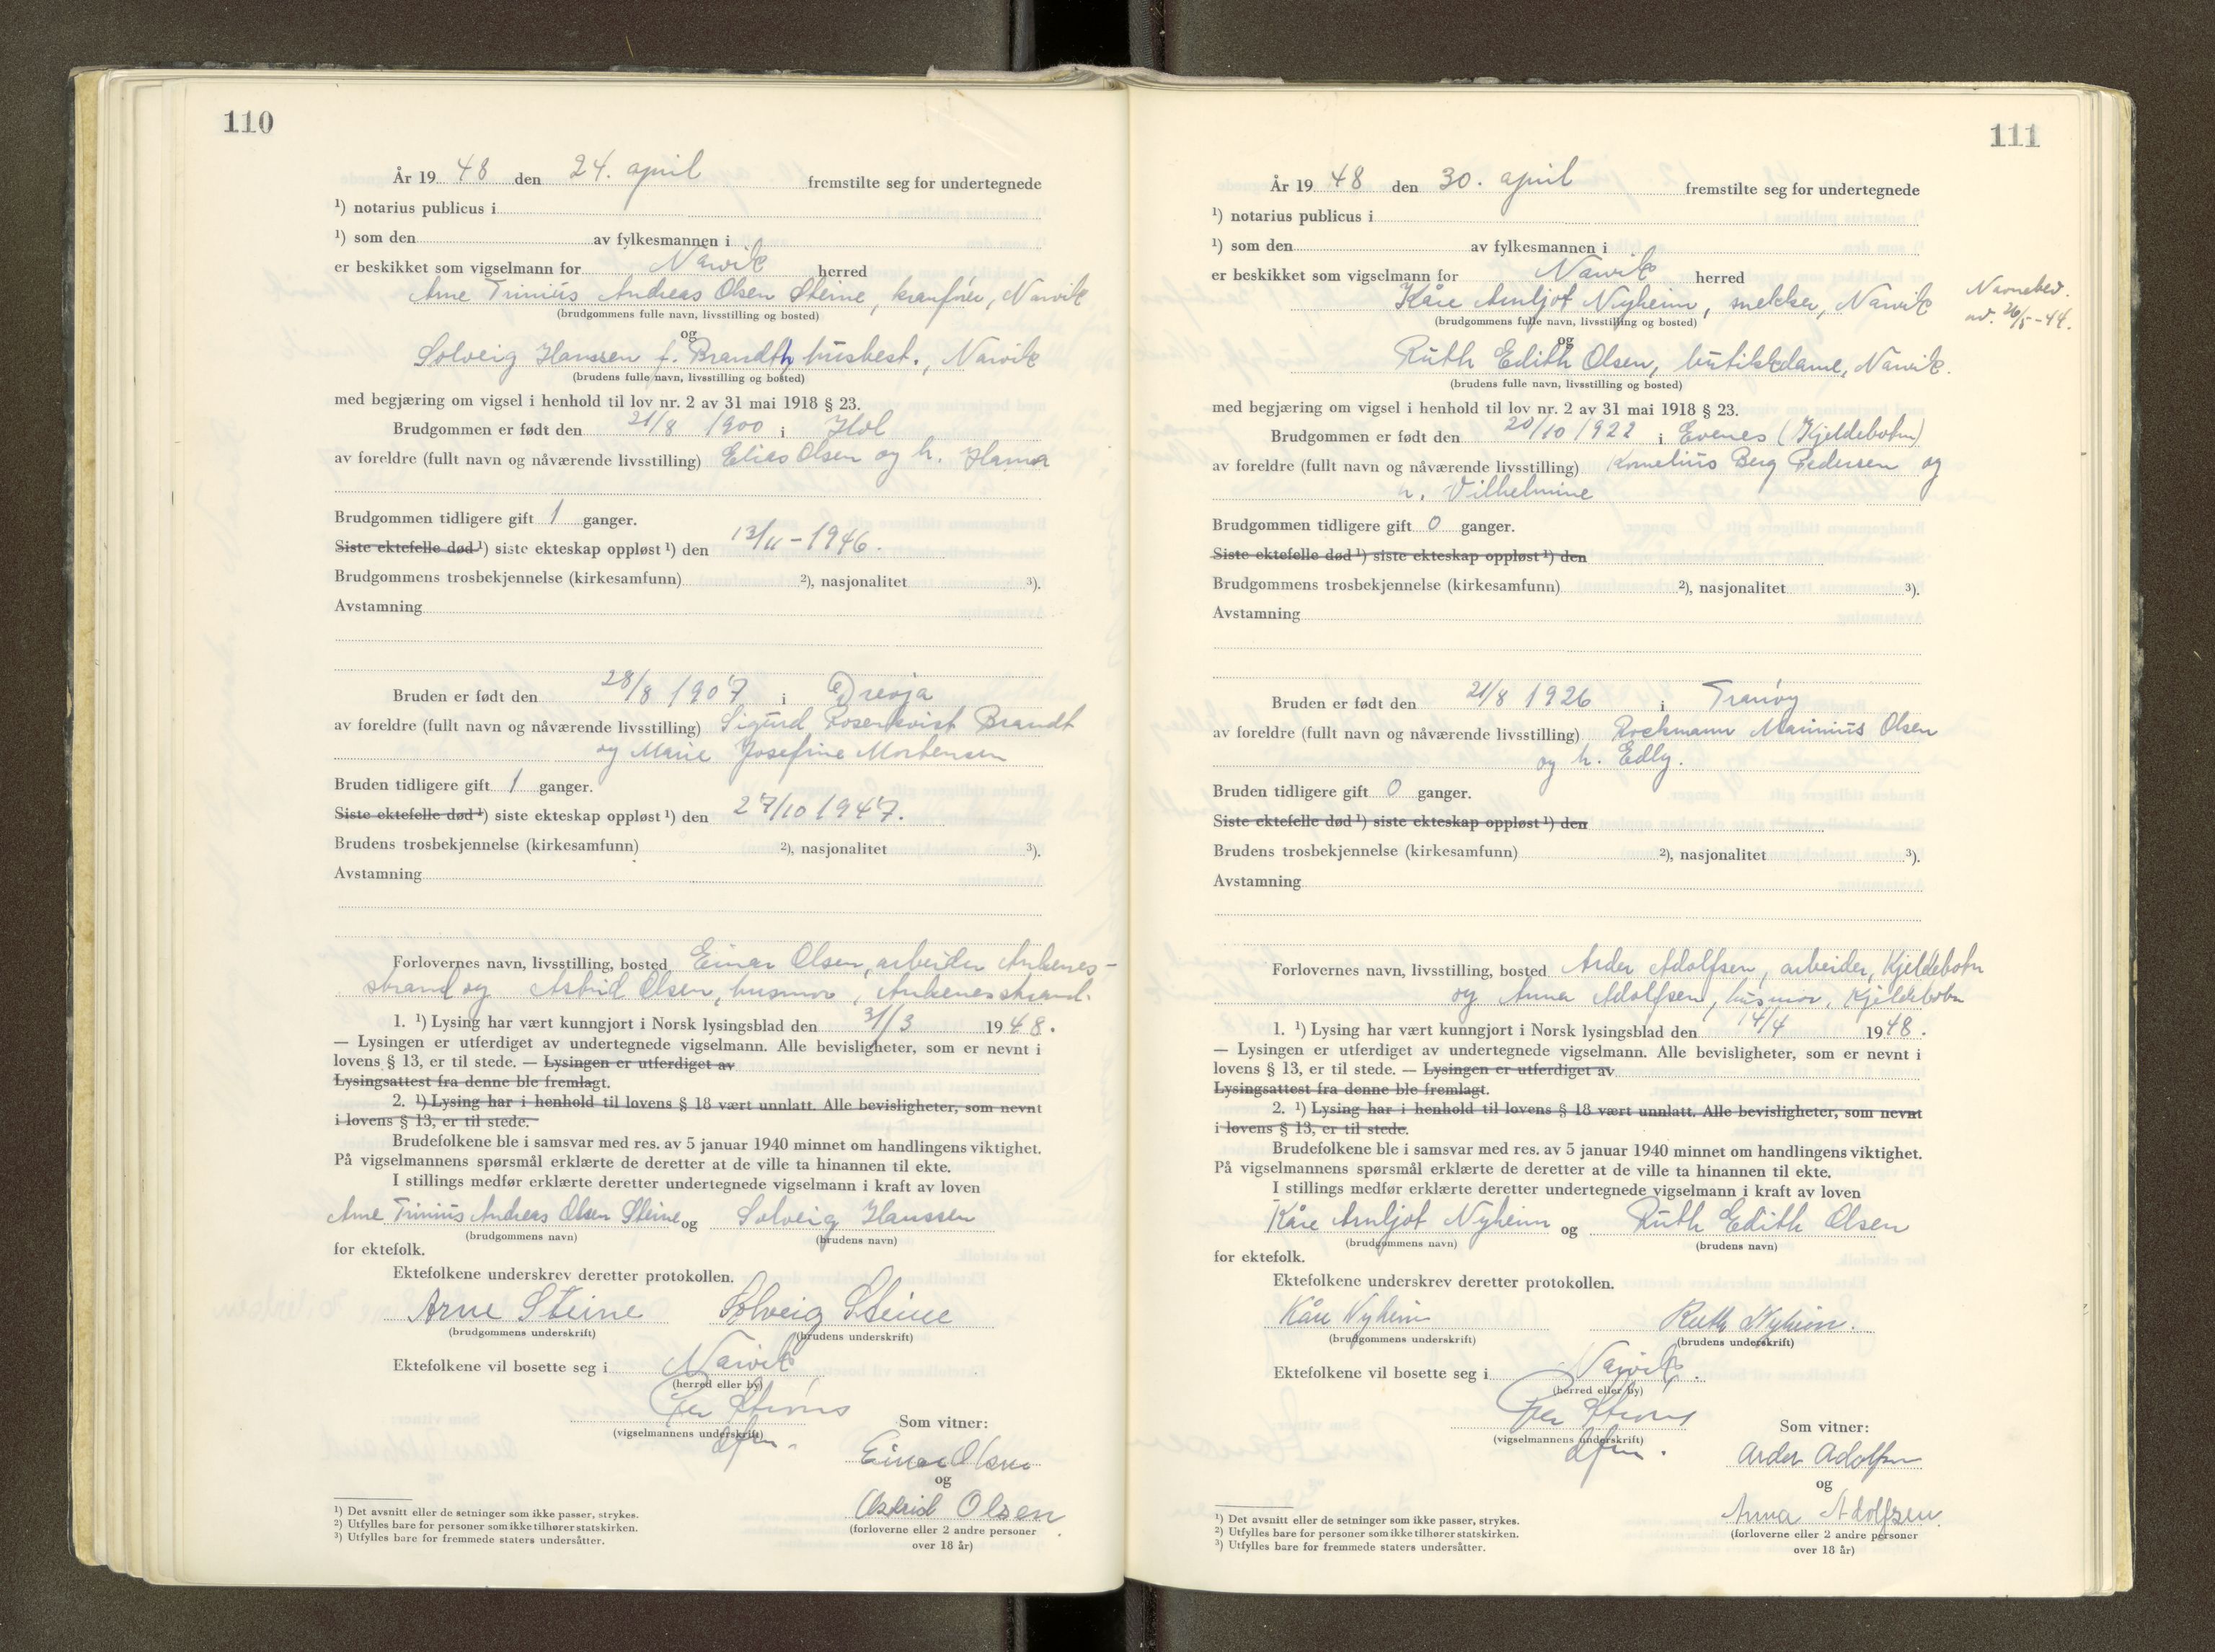 110
År 19 48 den 24. april fremstilte seg for undertegnede
¹) notarius publicus i
¹) som den av fylkesmannen i
er beskikket som vigselmann for Narvik herred
Arne Trinius Andreas Olsen Steine, kranfører, Narvik
(brudgommens fulle navn, livsstilling og bosted)
og
Solveig Hanssen f. Brandth husbest., Narvik
(brudens fulle navn, livsstilling og bosted)
med begjæring om vigsel i henhold til lov nr. 2 av 31 mai 1918 § 23.
Brudgommen er født den 21/8 1900 i Hol
av foreldre (fullt navn og nåværende livsstilling) Elias Olsen og h. Hanna
Brudgommen tidligere gift 1 ganger.
Siste ektefelle død ¹) siste ekteskap oppløst ¹) den 13/11 - 1946.
Brudgommens trosbekjennelse (kirkesamfunn) ²), nasjonalitet ³).
Avstamning
Bruden er født den 28/8 1907 i Drevja
av foreldre (fullt navn og nåværende livsstilling) Sigurd Rosenkvist Brandt
og Marie Josefine Mortensen
Bruden tidligere gift 1 ganger.
Siste ektefelle død ¹) siste ekteskap oppløst ¹) den 27/10 1947.
Brudens trosbekjennelse (kirkesamfunn) ²), nasjonalitet ³).
Avstamning
Forlovernes navn, livsstilling, bosted Einar Olsen, arbeider Ankenes-
strand og Astrid Olsen, husmor, Ankenesstrand.
1. ¹) Lysing har vært kunngjort i Norsk lysingsblad den 31/3 1948.
— Lysingen er utferdiget av undertegnede vigselmann. Alle bevisligheter, som er nevnt i
lovens § 13, er til stede. — Lysingen er utferdiget av
Lysingsattest fra denne ble fremlagt.
2. ¹) Lysing har i henhold til lovens § 18 vært unnlatt. Alle bevisligheter, som nevnt
i lovens § 13, er til stede.
Brudefolkene ble i samsvar med res. av 5 januar 1940 minnet om handlingens viktighet.
På vigselmannens spørsmål erklærte de deretter at de ville ta hinannen til ekte.
I stillings medfør erklærte deretter undertegnede vigselmann i kraft av loven
Arne Trinius Andreas Olsen Steine og Solveig Hanssen
(brudgommens navn) (brudens navn)
for ektefolk.
Ektefolkene underskrev deretter protokollen.
Arne Steine Solveig Steine
(brudgommens underskrift) (brudens underskrift)
Ektefolkene vil bosette seg i Narvik
(herred eller by)
(vigselmannens underskrift)
Som vitner:
Einar Olsen
og
Astrid Olsen
(forloverne eller 2 andre personer
over 18 år)
¹) Det avsnitt eller de setninger som ikke passer, strykes.
²) Utfylles bare for personer som ikke tilhører statskirken.
³) Utfylles bare for fremmede staters undersåtter.
111
År 19 48 den 30. april fremstilte seg for undertegnede
¹) notarius publicus i
¹) som den av fylkesmannen i
er beskikket som vigselmann for Narvik herred
Kåre Arnljot Nyheim, snekker, Narvik
Navnebev.
av. 26/5 - 44.
(brudgommens fulle navn, livsstilling og bosted)
og
Ruth Edith Olsen, butikkdame, Narvik.
(brudens fulle navn, livsstilling og bosted)
med begjæring om vigsel i henhold til lov nr. 2 av 31 mai 1918 § 23.
Brudgommen er født den 20/10 1922 i Evenes (Kjeldebotn)
av foreldre (fullt navn og nåværende livsstilling) Kornelius Berg Pedersen og
h. Vilhelmine
Brudgommen tidligere gift 0 ganger.
Siste ektefelle død ¹) siste ekteskap oppløst ¹) den
Brudgommens trosbekjennelse (kirkesamfunn) ²), nasjonalitet ³).
Avstamning
Bruden er født den 21/8 1926 i Tranøy
av foreldre (fullt navn og nåværende livsstilling) Rockmann Marinius Olsen
og h. Edly.
Bruden tidligere gift 0 ganger.
Siste ektefelle død ¹) siste ekteskap oppløst ¹) den
Brudens trosbekjennelse (kirkesamfunn) ²), nasjonalitet ³).
Avstamning
Forlovernes navn, livsstilling, bosted Arder Adolfsen, arbeider, Kjeldebotn
og Anna Adolfsen, husmor, Kjeldebotn
1. ¹) Lysing har vært kunngjort i Norsk lysingsblad den 14/4 1948.
— Lysingen er utferdiget av undertegnede vigselmann. Alle bevisligheter, som er nevnt i
lovens § 13, er til stede. — Lysingen er utferdiget av
Lysingsattest fra denne ble fremlagt.
2. ¹) Lysing har i henhold til lovens § 18 vært unnlatt. Alle bevisligheter, som nevnt
i lovens § 13, er til stede.
Brudefolkene ble i samsvar med res. av 5 januar 1940 minnet om handlingens viktighet.
På vigselmannens spørsmål erklærte de deretter at de ville ta hinannen til ekte.
I stillings medfør erklærte deretter undertegnede vigselmann i kraft av loven
Kåre Arnljot Nyheim og Ruth Edith Olsen
(brudgommens navn) (brudens navn)
for ektefolk.
Ektefolkene underskrev deretter protokollen.
Kåre Nyheim Ruth Nyheim.
(brudgommens underskrift) (brudens underskrift)
Ektefolkene vil bosette seg i Narvik.
(herred eller by)
(vigselmannens underskrift)
Som vitner:
Arder Adolfsen
og
Anna Adolfsen.
(forloverne eller 2 andre personer
over 18 år)
¹) Det avsnitt eller de setninger som ikke passer, strykes.
²) Utfylles bare for personer som ikke tilhører statskirken.
³) Utfylles bare for fremmede staters undersåtter.